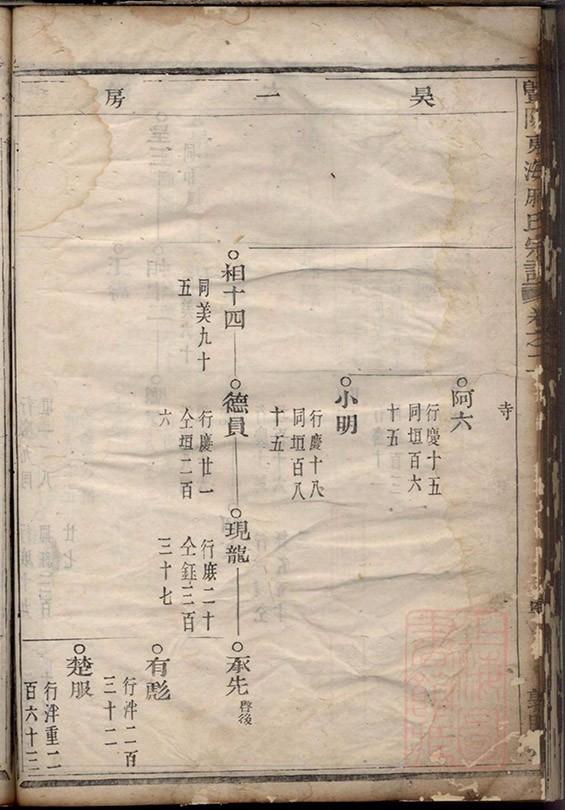 暨陽東海𫝹氏宗譜卷之二
昊一房
寺
阿六
行慶十五
同垣百六
十五
小明
行慶十八
同垣百八
十五
相十四
同美九十
五
德員
行慶廿一
仝垣二百
六
現龍
行庶二十
仝鉦三百
三十七
承先
啓後
有彪
行泮二百
三十二
楚服
行泮重二
百六十三